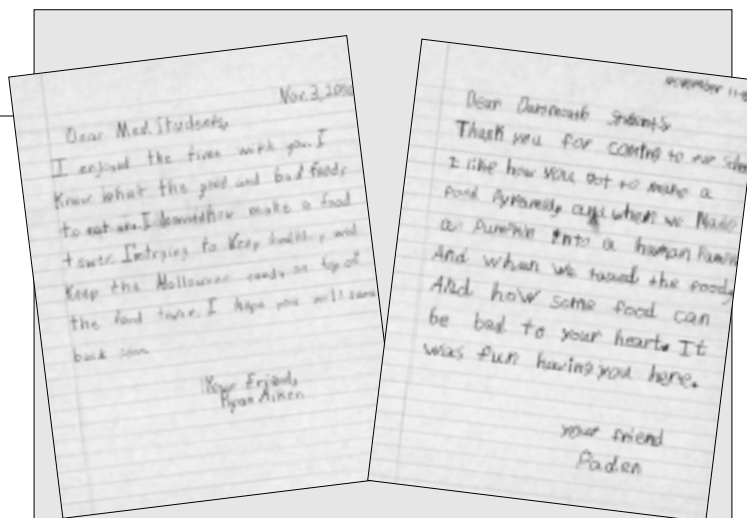 Nov. 3, 200
Dear Med. Students,
I enjoud the time with you. I
Know what the good and bad foods
to eat are. I learned how make a food
tower. I'm trying to Keep healthy and
Keep the Halloween candy on top of
the food tower. I hope you will come
back soon
Your Friend,
Ryan Aiken
November 11
Dear Dartmouth students
Thank you for coming to our
I like how you got to make a
food Pyramid, and when we Made
a Pumkin into a human
And when we tased the foods
And how some food can
be bad to your heart. It
was fun having you here.
your friend
Paden